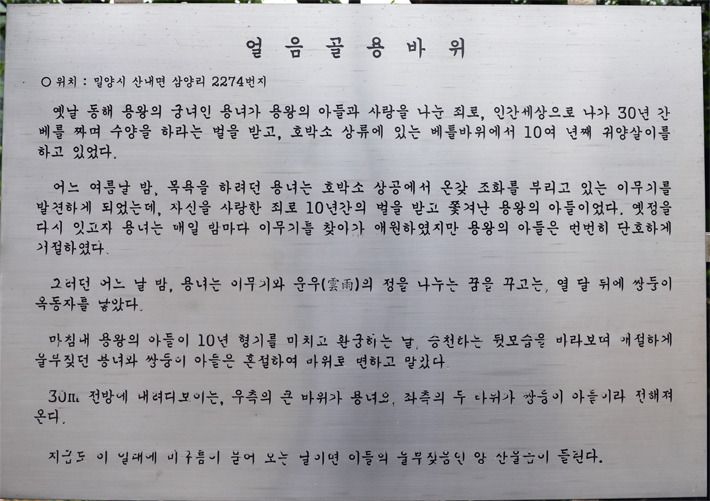 얼음골용바위
○ 위치 : 밀양시 산내면 삼양리 2274번지
옛날 동해 용왕의 궁녀인 용녀가 용왕의 아들과 사랑을 나눈 죄로, 인간세상으로 나가 30년 간
베를 짜며 수양을 하라는 벌을 받고, 호박소 상류에 있는 베틀바위에서 10여 년째 귀양살이를
하고 있었다.
어느 여름날 밤, 목욕을 하려던 용녀는 호박소 상공에서 온갖 조화를 부리고 있는 이무기를
발견하게 되었는데, 자신을 사랑한 죄로 10년간의 벌을 받고 쫓겨난 용왕의 아들이었다. 옛정을
다시 잇고자 용녀는 매일 밤마다 이무기를 찾아가 애원하였지만 용왕의 아들은 번번히 단호하게
거절하였다.
그러던 어느 날 밤, 용녀는 이무기와 운우(雲雨)의 정을 나누는 꿈을 꾸고는, 열 달 뒤에 쌍둥이
옥동자를 낳았다.
마침내 용왕의 아들이 10년 형기를 마치고 환궁하는 날, 승천하는 뒷모습을 바라보며 애절하게
울부짖던 용녀와 쌍둥이 아들은 혼절하여 바위로 변하고 말았다.
30m 전방에 내려다보이는, 우측의 큰 바위가 용녀요, 좌측의 두 바위가 쌍둥이 아들이라 전해져
온다.
지금도 이 일대에 비구름이 몰려 오는 날이면 이들의 울부짖음인 양 산울음이 들린다.